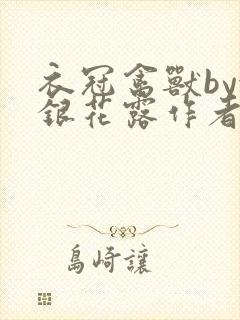 衣冠禽獸by
銀花露作者
島崎讓